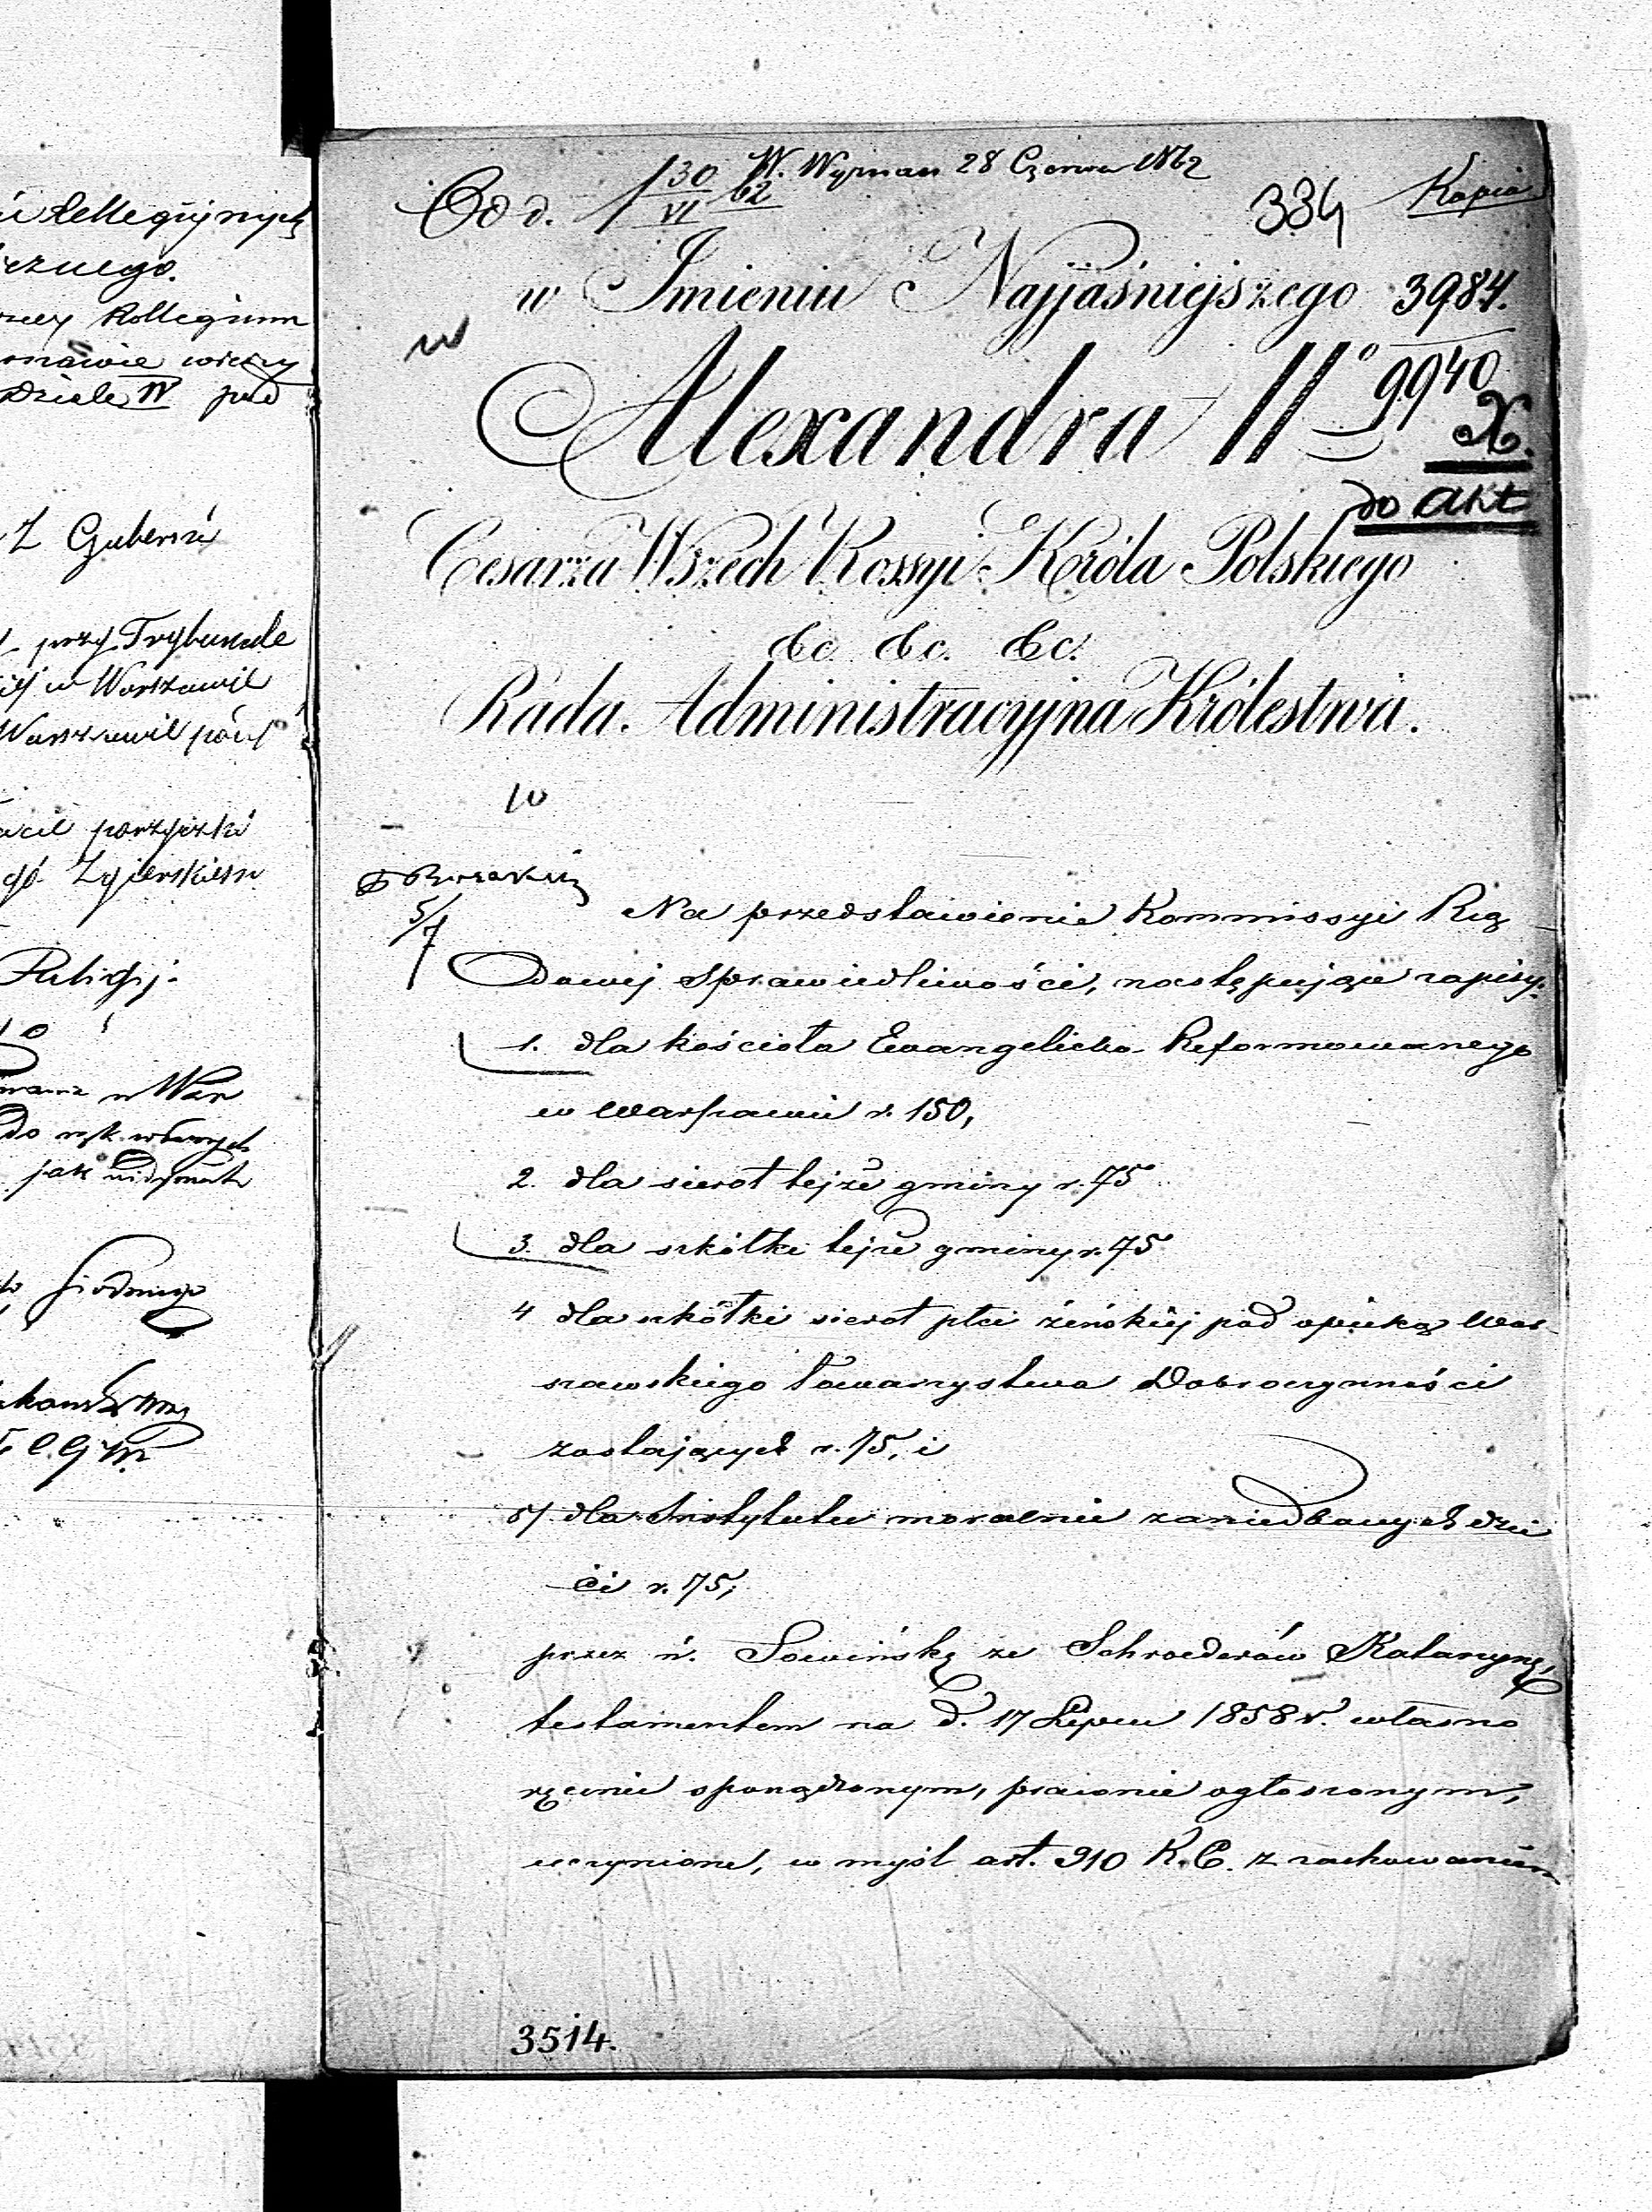 Kollegijnych
Kollegium
wieczy
Dziele IV pod
Z Gubernii
przy Trybunale
w Warszawie
Warszawie
pożyczki
Zgierskiem
w War
do rąk
jak
Od d. 30/VI 62 W. Wyznan 28 Czerwca 1862
334 Kopia
w Imieniu Najjaśniejszego 3984.
Alexandra IIº 9940
X.
do akt
Cesarza Wszech Rossyi Króla Polskiego
&c. &c. &c.
Rada Administracyjna Królestwa.
10
5/7
Na przedstawienie Kommissyi Rzą
dowej Sprawiedliwości, następujące zapisy:
1. dla kościoła Ewangelicko-Reformowanego
w Warszawie r. 150,
2. dla sierot tejże gminy r. 75
3. dla szkółki tejże gminy r. 75
4 dla szkółki sierot płci żeńskiej pod opieką War-
szawskiego Towarzystwa Dobroczynności
zostających r. 75, i
5/ dla Instytutu moralnie zaniedbanych dzie
ci r. 75,
przez n. Sowińską ze Schroederów Katarzynę,
testamentem na d. 17 Lipca 1858 r. własno
ręcznie sporządzonym, prawnie ogłoszonym,
uczynione, w myśl art. 910 K.C. z zachowaniem
3514.